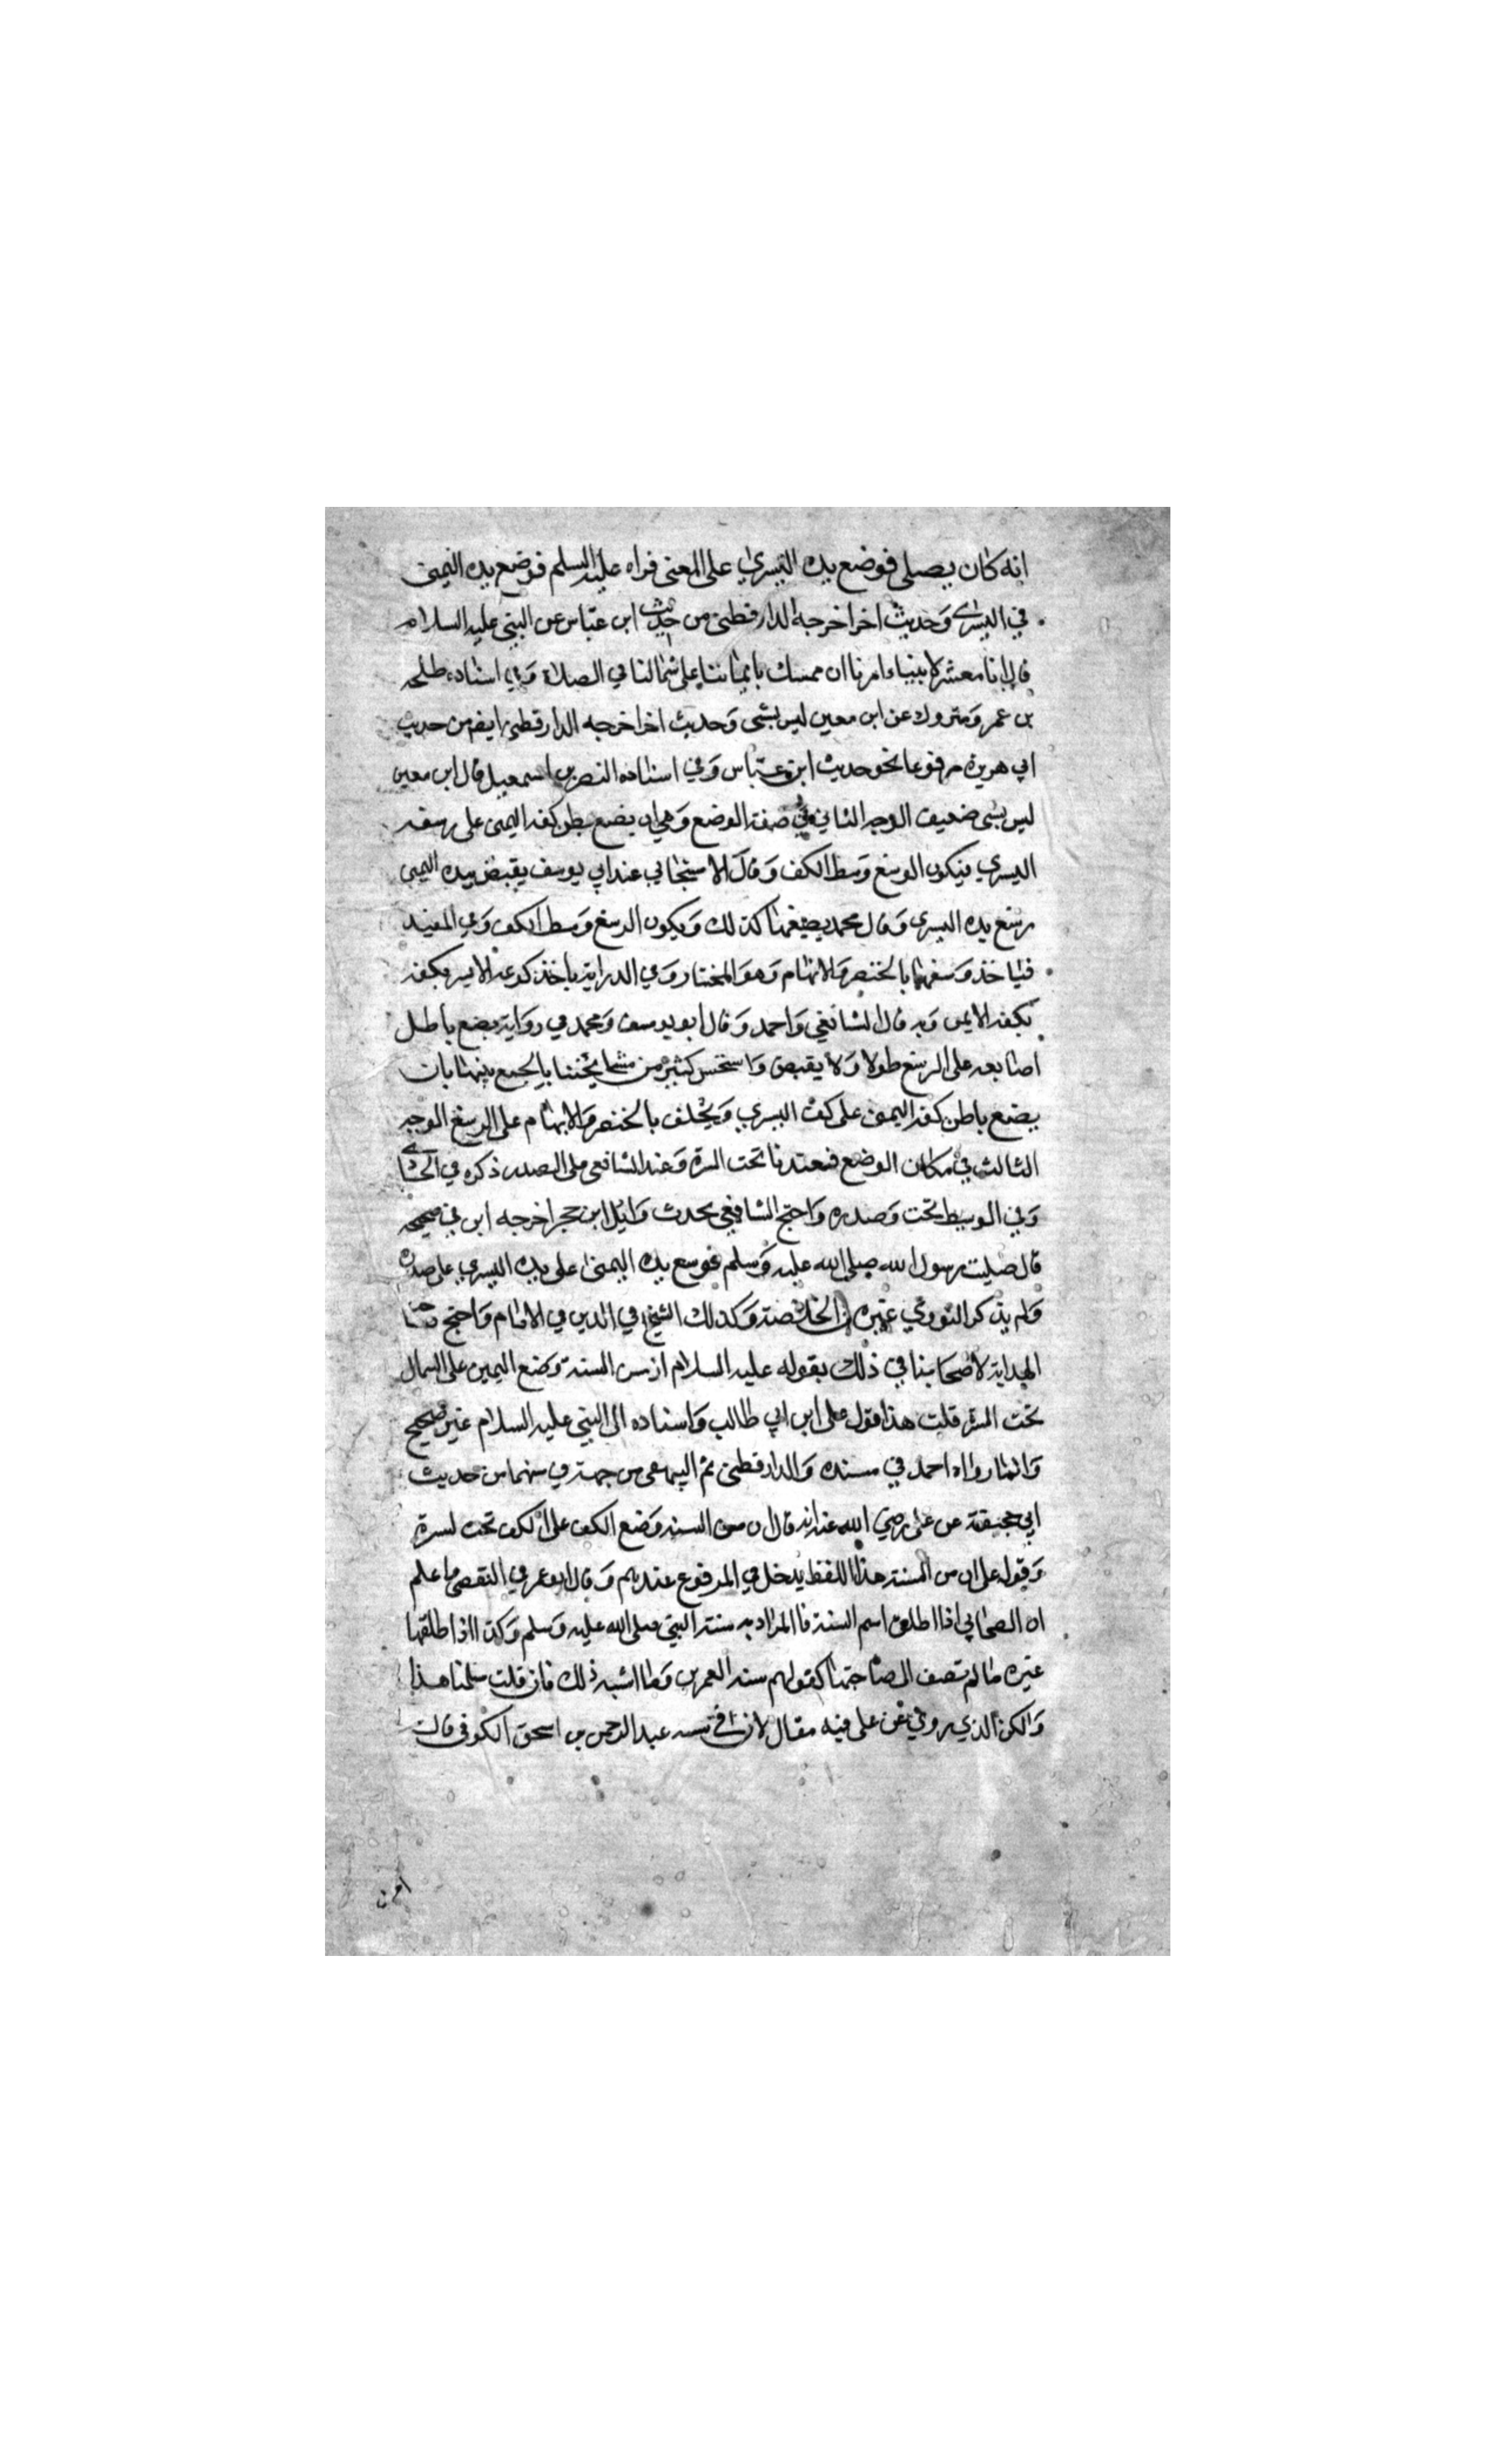 انه كان يصلي فوضع يده اليسرى على اليمنى فراه عليه السلم فوضع يده اليمنى
في اليسرى وحديث اخر اخرجه الدارقطني من حديث ابن عباس عن النبي عليه السلام
قال انا معشر الانبياء امرنا ان نمسك بايماننا على شمالنا في الصلاة وفي اسناده طلحه
بن عمر ومتروك عن ابن معين ليس بشي وحديث اخر اخرجه الدارقطني ايضم من حديث
ابي هريرة مرفوعا نحو حديث ابن عباس وفي اسناده النضر بن اسمعيل قال ابن معين
ليس بشي ضعيف الوجه الثاني في صفة الوضع وهي ان يضع بطن كفه اليمنى على رسغه
اليسرى فيكون الرسغ وسط الكف وقال الاسبيجابي عند ابي يوسف يقبض بيده اليمنى
رسغ يده اليسرى وقال محمد يضعهما كذلك ويكون الرسغ وسط الكف وفي المفيد
فياخذ رسغهما بالخنصر والابهام وهو المختار وفي الدراية ياخذ كوعه الايسر بكفه
بكفه الايمن وبه قال الشافعي واحمد وقال ابو يوسف ومحمد في رواية يضع باطل
اصابعه على الرسغ طولا ولا يقبض واستحسن كثير من مشايخنا بالجمع بينهما بان
يضع باطن كفه اليمنى على كف اليسرى ويحلق بالخنصر والابهام على الرسغ الوجه
الثالث في مكان الوضع فعندنا تحت السرة وعند الشافعي على الصدر ذكره في الحاوي
وفي الوسيط تحت وصدره واحتج الشافعي بحدث وايل ابن حجر اخرجه ابن في صحيحه
قال صليت رسول الله صلى الله عليه وسلم فوسع يده اليمنى على يده اليسرى على صدره
ولم يذكر النووي غيره في الخلاصة وكذلك الشيخ في الدين في الامام واحتج صاحب
الهداية لاصحابنا في ذلك بقوله عليه السلام ان من السنة وضع اليمين على الشمال
تحت السرة قلت هذا قول على ابن ابي طالب واسناده الى النبي عليه السلام غير صحيح
وانما رواه احمد في مسنده والدارقطني ثم البيهقي من جهته في سنهما من حديث
ابي جحيفة عن على رضي الله عنه انه قال ان من السنة وضع الكف على الكف تحت لسرة
وقول على ان من السنة هذا اللفظ يدخل في المرفوع عندهم وقال ابو عمر في التقصي واعلم
ان الصحابي اذا اطلق اسم السنة فالمراد به سنة النبي صلى الله عليه وسلم وكذا اذا اطلقها
غيره ما لم تضف الى صاحبها كقولهم سنة العمرين وما اشبه ذلك فان قلت سلمنا هذا
والكن الذي روي عن على فيه مقال لان في سنده عبد الرحمن بن اسحق الكوفي قال